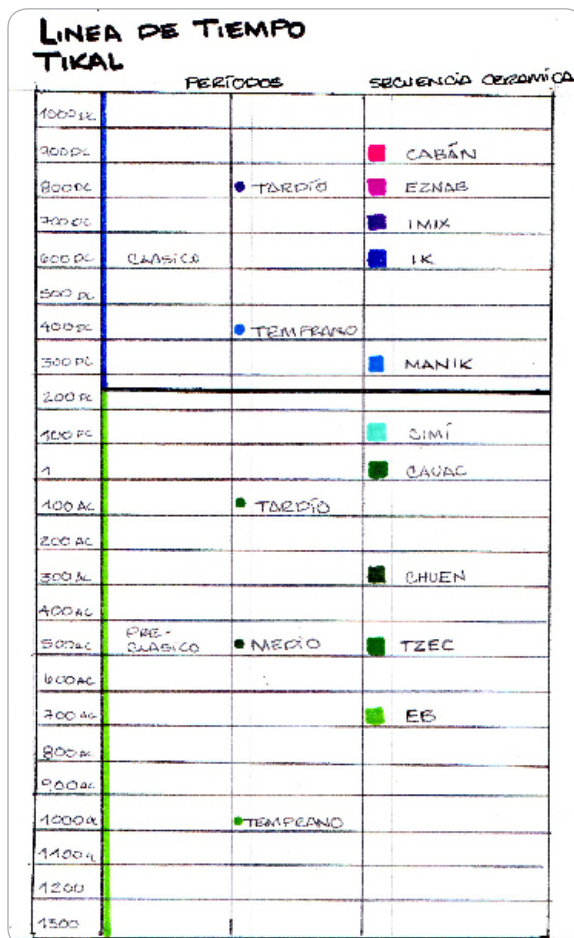 LINEA DE TIEMPO
TIKAL
PERÍODOS SECUENCIA CERAMICA
1000 DC
900 DC CABÁN
800 DC TARDÍO EZNAB
700 DC IMIX
600 DC CLASICO IK
500 DC
400 DC TEMPRANO
300 DC MANIK
200 DC
100 DC CIMÍ
1 CAUAC
100 AC TARDÍO
200 AC
300 AC CHUEN
400 AC
PRE-
500 AC CLASICO MEDIO TZEC
600 AC
700 AC EB
800 AC
900 AC
1000 A TEMPRANO
1100 A
1200
1300